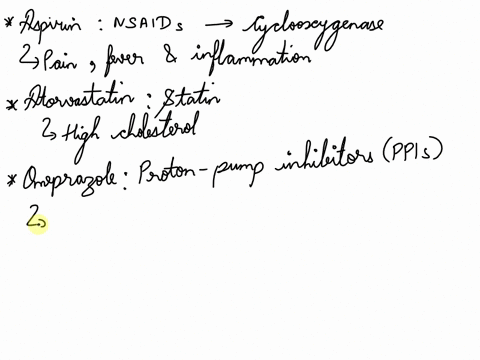 * Aspirin : NSAIDs → Cyclooxygenase
↳ Pain , fever & inflammation
* Atorvastatin : Statin
↳ High cholesterol
* Omeprazole : Proton-pump inhibitors (PPIs)
↳